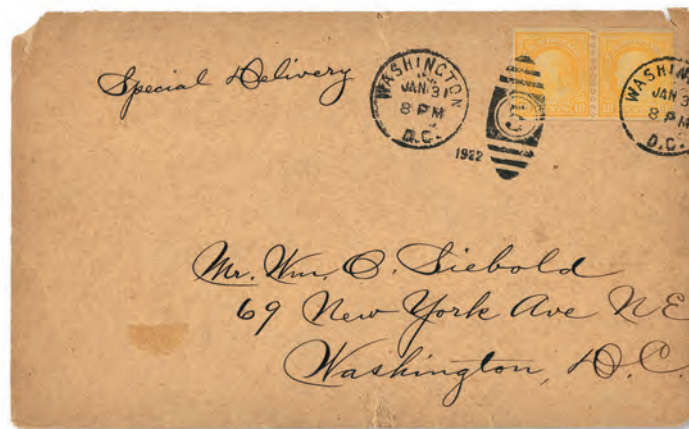 Special Delivery
WASHINGTON
JAN 31
8 PM
D.C.
1922
WASHIN
JAN 3
8 P
D.C.
Mr. Wm. O. Siebold
69 New York Ave NE
Washington, D.C.